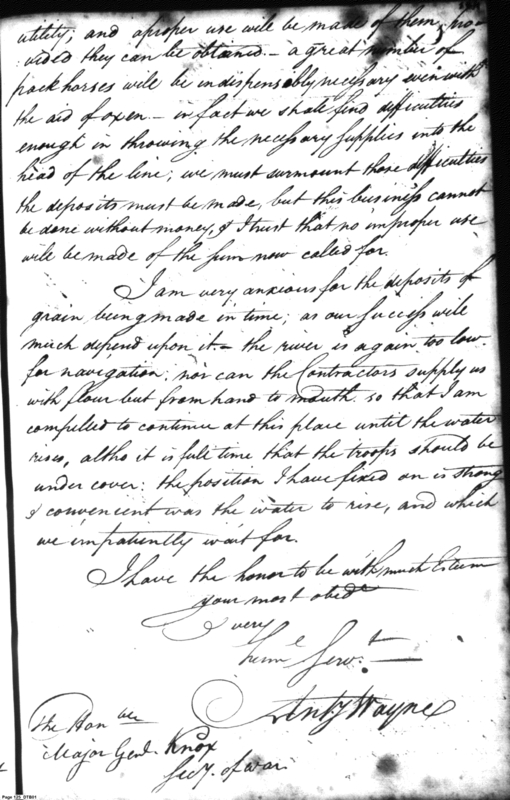 utility; and a proper use will be made of them, pro-
vided they can be obtained — a great number of
pack horses will be indispensably necessary even with
the aid of oxen — in fact we shall find difficulties
enough in throwing the necessary supplies into the
head of the line; we must surmount those difficulties
the deposits must be made, but this business cannot
be done without money, & I trust that no improper use
will be made of the sum now called for.
I am very anxious for the deposits of
grain being made in time; as our success will
much depend upon it — the river is again too low
for navigation; nor can the Contractors supply us
with flour but from hand to mouth. so that I am
compelled to continue at this place until the water
rises, altho it is full time that the troops should be
under cover: the position I have fixed on is strong
& convenient was the water to rise, and which
we impatiently wait for.
I have the honor to be with much Esteem
your most obedt
& very
Humle Servt —
Anty Wayne
The Honble
Major Genl. Knox
Secy. of war
Page 125 DTB01